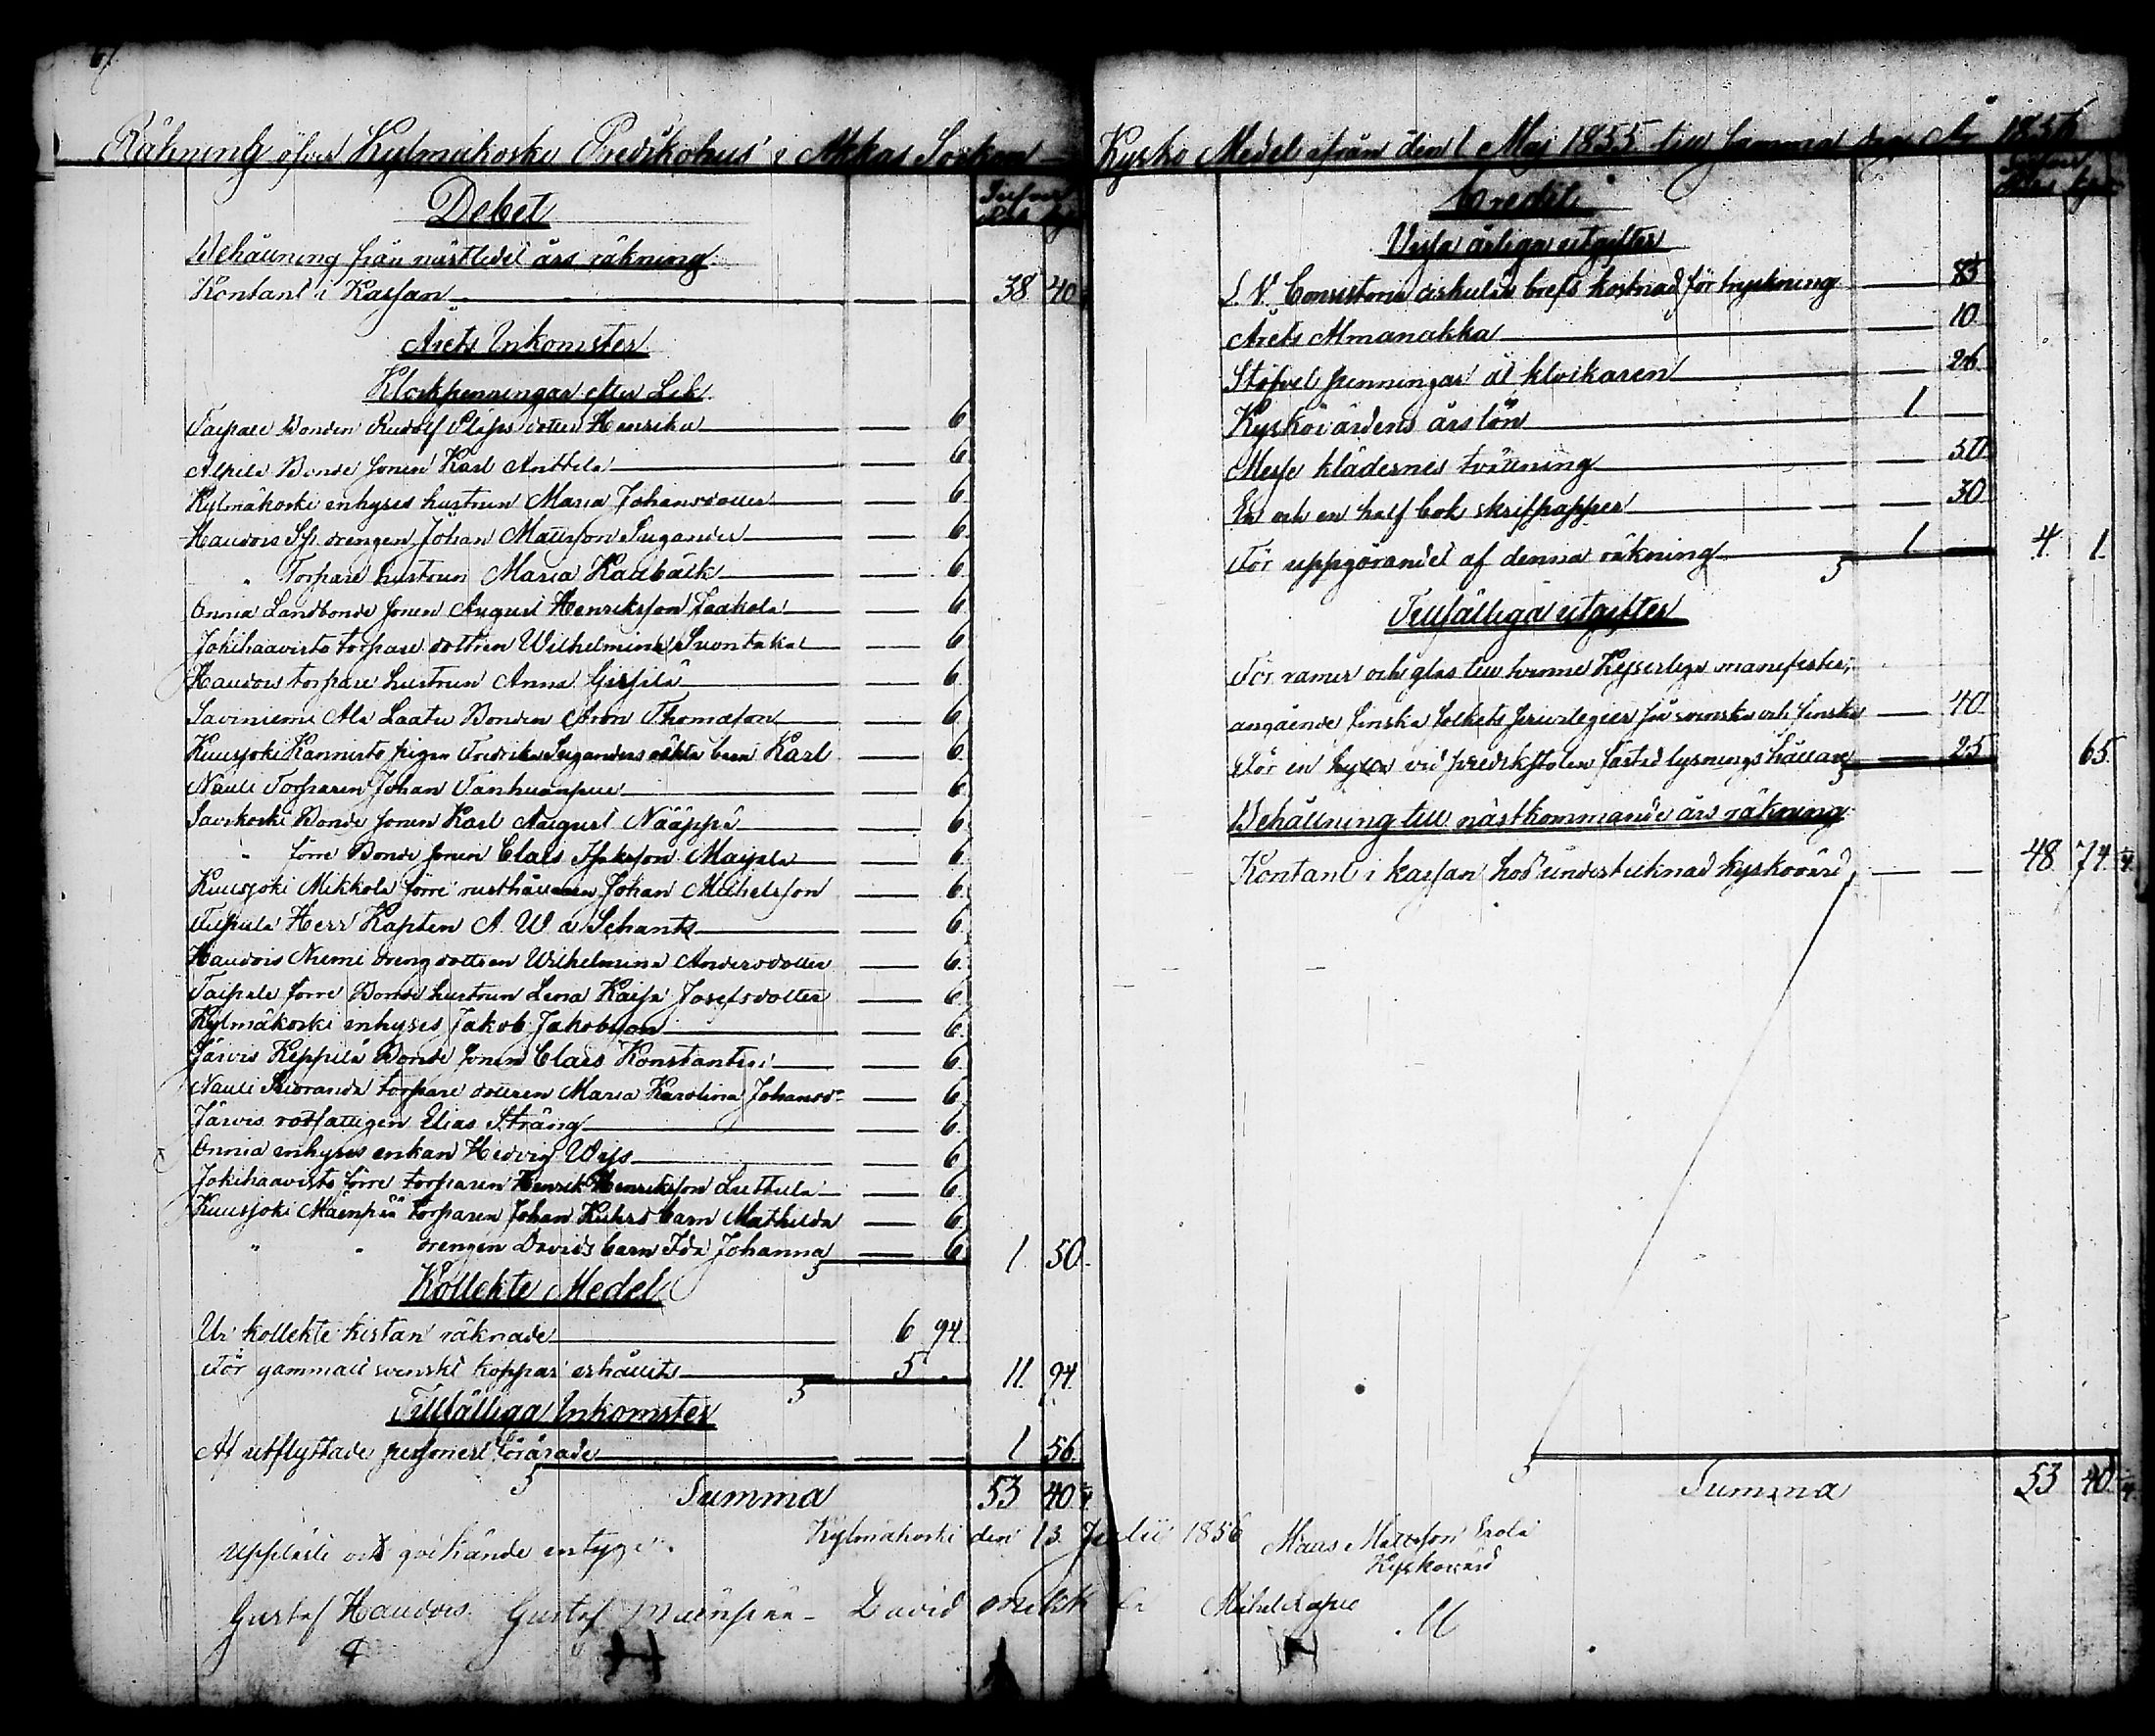 Räkning öfver Kylmäkoski Predikohus i Akkas Sorkom Kyrko Medel ifrån den 1 Maj 1855 till samma dag År 1856
Debet
Silfver
Rub. kop.
Behållning från nästledet års räkning
Kontant i Kassan 38 40
Årets Inkomster
Klockpenningar efter Lik
Taipale Bonden Rudolf dotter Henrika 6
Alpila Bonde sonen Karl Anttila 6
Kylmäkoski enhyses hustrun Maria Johansdotter 6
Haudois drengen Johan Mattsson Sugander 6
" Torpare hustrun Maria Kaabäck 6
Onnia Landbonde sonen August Henriksson Jaakola 6
Jokihaavisto torpare dottren Wilhelmina Suontaka 6
Haudois torpare hustrun Anna 6
Saviniemi Ala Laatu Bonden Aron Thomasson 6
Kuusjoki Kannisto pigan Fredrika Suganders oäkta barn Karl 6
Nauli Torparen Johan Vanhuanpuu 6
Savikoski Bonde sonen Karl August Nääppä 6
" förre Bonde sonen Claes Isaksson 6
Kuusjoki Mikkola förre rusthållaren Johan Michelsson 6
Herr Kapten A. W. v Schantz 6
Haudois Niemi dreng dottren Wilhelmina Andersdotter 6
Taipale förre Bonde hustrun Lena Kaisa Josefsdotter 6
Kylmäkoski enhyses Jakob Jakobsson 6
Järvis Keppilä Bonde sonen Claes Konstantin 6
Nauli torpare dottren Maria Karolina Johansd 6
Järvis rotfattigen Elias Sträng 6
Onnia enhyses enkan Hedvig 6
Jokihaavisto förre torparen Henrik Henriksson 6
Kuusjoki Mäenpää torparen Johan barn Mathilda 6
" " drengen Davids barn Ida Johanna 6 1 50
Kollekte Medel
Ur kollekte kistan räknade 6 94
För gammalt svenskt koppar erhållits 5 . 11 94
Tillfälliga Inkomster
Af utflyttade personer förärade 1 56
Summa 53 40
Kylmäkoski den 13 Julii 1856
Uppläst och godkände intyga:
Gustaf Haudois Gustaf Mäenpää David
Credit
Silfver
Rub. kop.
Vissa årliga utgifter
L. V. Consistorii cirkulär brefs kostnad för tryckning 85
Årets Almanakka 10
Stofvel penningar åt klockaren 26
Kyrkovärdens årslön 1
Messe klädernes tvättning 50
En och en half bok skrifpapper 30
För uppgörandet af denna räkning 1 4 1
Tillfälliga utgifter
För ramar och glas till tvenne Kejserliga manifester,
angående finska folkets privilegier på svenska och finska 40
För en hylla vid predikstolen lysnings hållare 25 65
Behållning till nästkommande års räkning
Kontant i kassan hos undertecknad kyrkovärd 48 74
Summa 53 40
Matts Mattsson Erola
Kyrkovärd
Michel